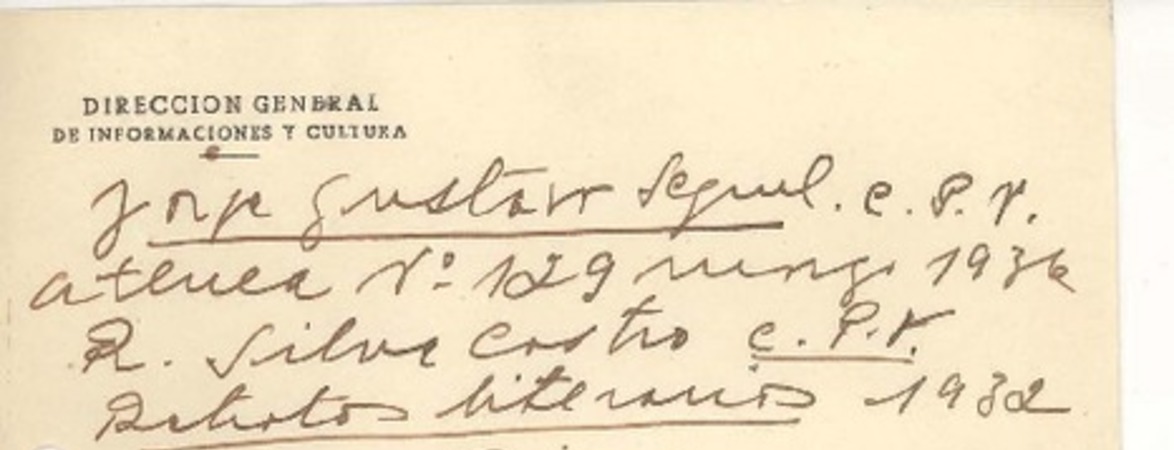 DIRECCION GENERAL
DE INFORMACIONES Y CULTURA
Jorge Gustavo C. P. V.
Atenea Nº 129 1936
R. Silva Castro C. P. V.
Retratos literarios 1932